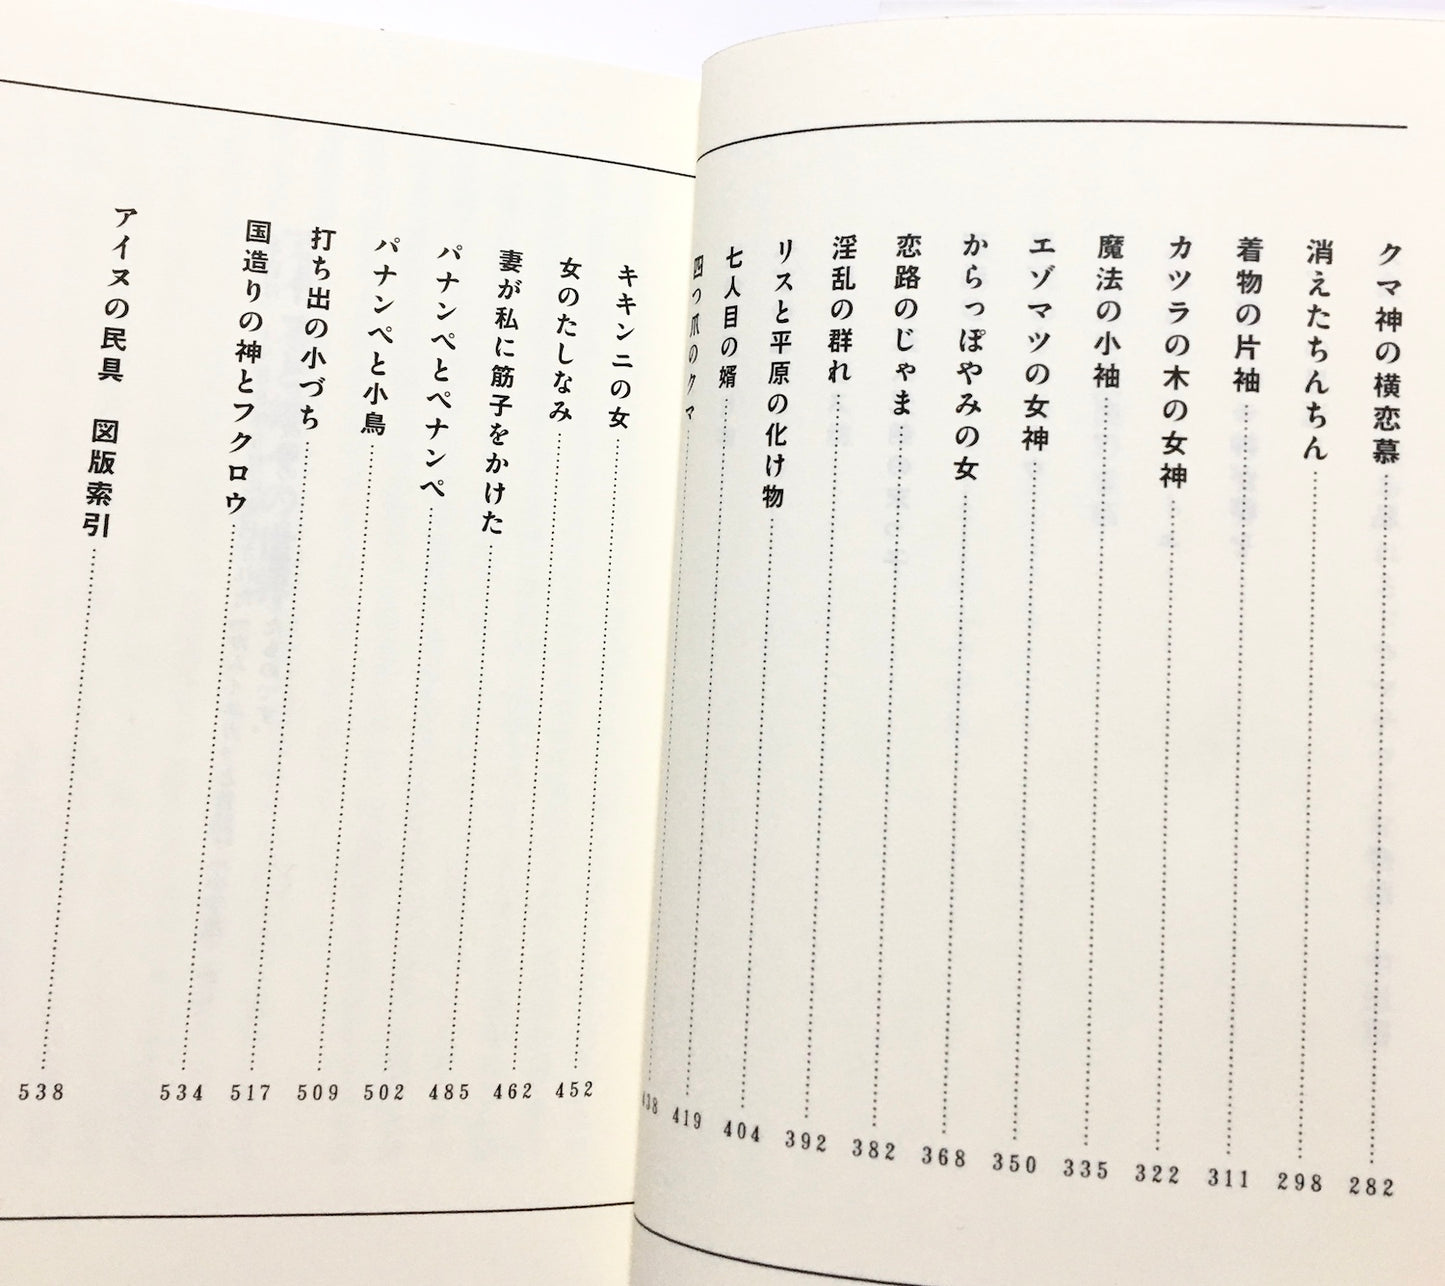 クマ神の横恋慕 282
消えたちんちん 298
着物の片袖 311
カツラの木の女神 322
魔法の小袖 335
エゾマツの女神 350
からっぽやみの女 368
恋路のじゃま 382
淫乱の群れ 392
リスと平原の化け物 404
七人目の婿 419
四つ爪のクマ 438
キキンニの女 452
女のたしなみ 462
妻が私に筋子をかけた 485
パナンペとペナンペ 502
パナンペと小鳥 509
打ち出の小づち 517
国造りの神とフクロウ 534
アイヌの民具 図版索引 538